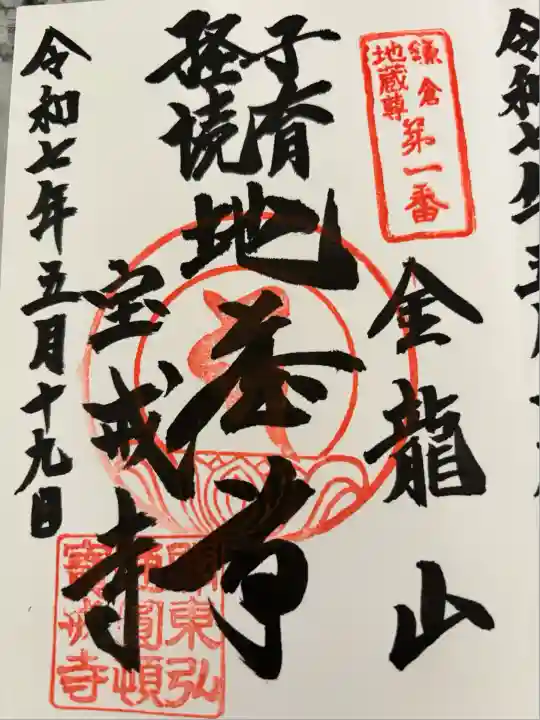 鎌倉
地蔵尊
第一番
金龍山
子育
経読
地蔵尊
宝戒寺
令和七年五月十九日
関東弘
通圓頓
寶戒寺
令和七年五月